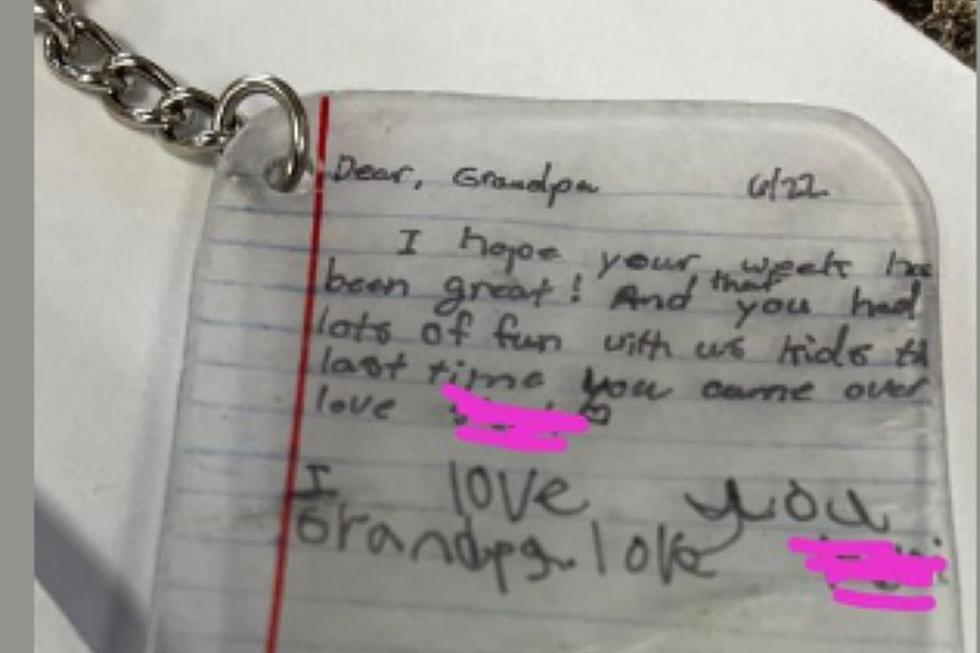 Dear, Grandpa 6/22
I hope your week ha
been great! And that you had
lots of fun with us kids th
last time you came over
love
I love you
Grandpa. love